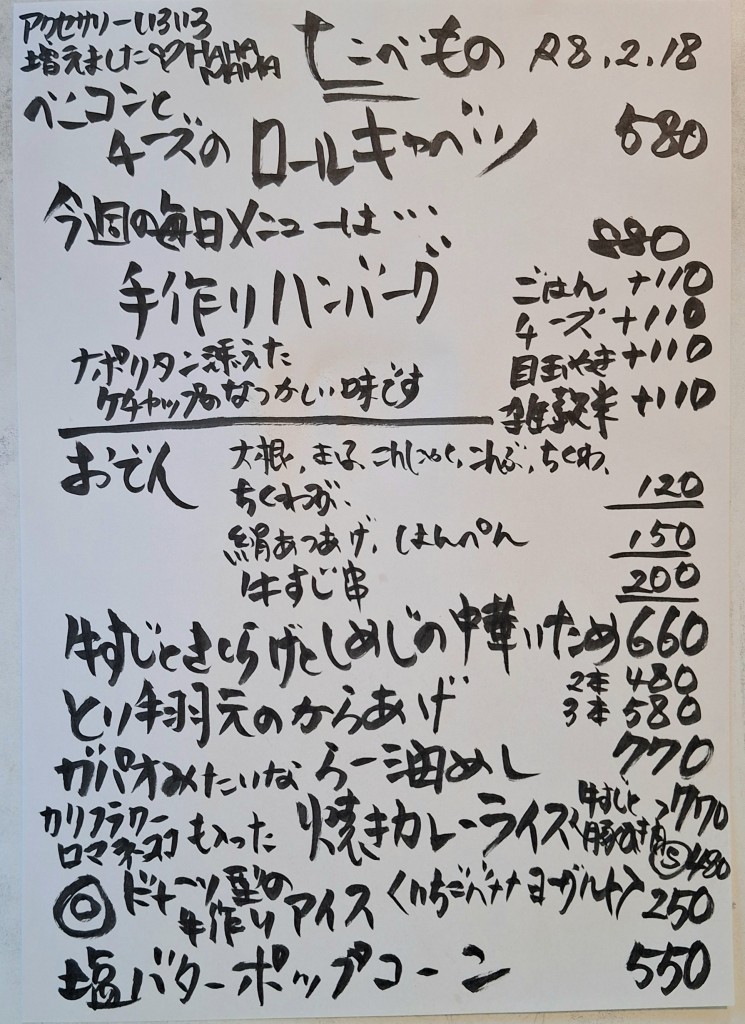 アクセサリーいろいろ
増えました♡HAHA MAMA
たべもの R8.2.18
ベーコンと
チーズの ロールキャベツ 580
今週の毎日メニューは…
手作りハンバーグ 880
ごはん +110
チーズ +110
目玉やき +110
雑穀米 +110
ナポリタン添えた
ケチャップのなつかしい味です
おでん 大根、玉子、こんにゃく、こんぶ、ちくわ、
ちくわぶ、 120
絹あつあげ、はんぺん 150
牛すじ串 200
牛すじときくらげとしめじの中華いため 660
とり手羽元のからあげ 2本 480
3本 580
ガパオみたいならー油めし 770
カリフラワー
ロマネスコも入った 焼きカレーライス〈牛すじと
豚ひき肉〉 770
Ⓢ480
◎ ドーナーツ型の
手作りアイス〈いちごバナナヨーグルト〉 250
塩バターポップコーン 550